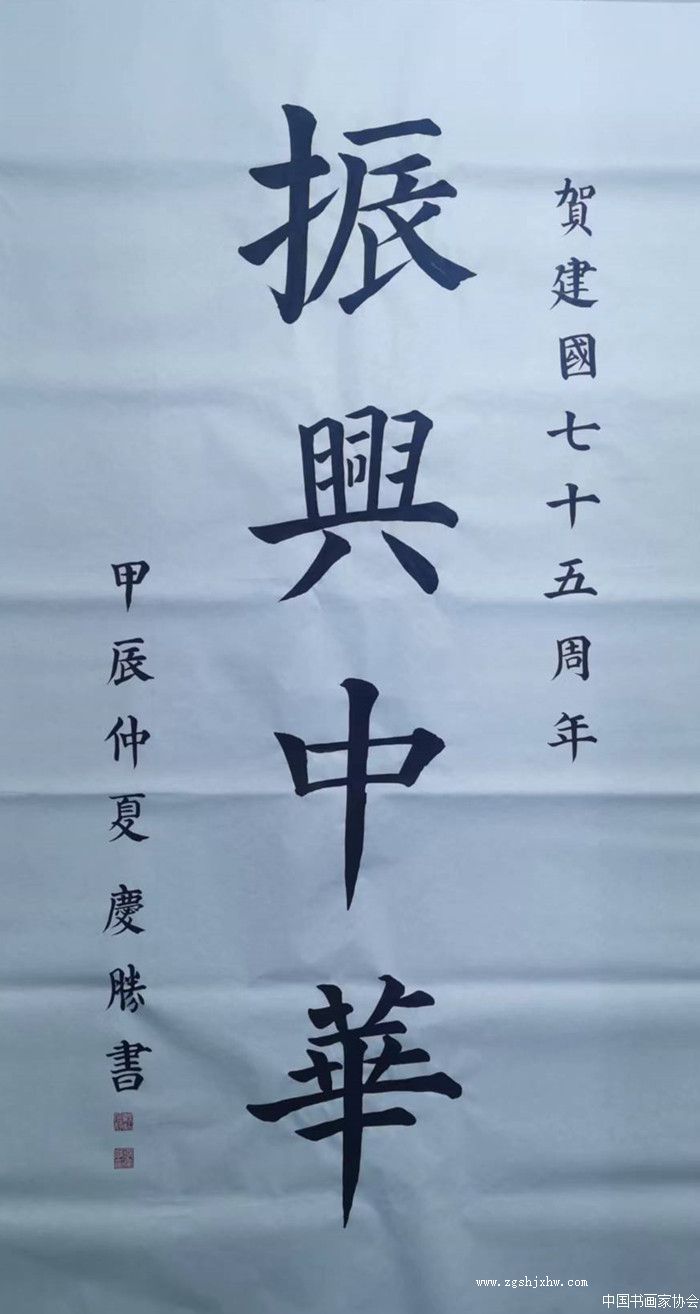 賀建國七十五周年
振興中華
甲辰仲夏慶勝書
www.zgshjxhw.com
中国书画家协会